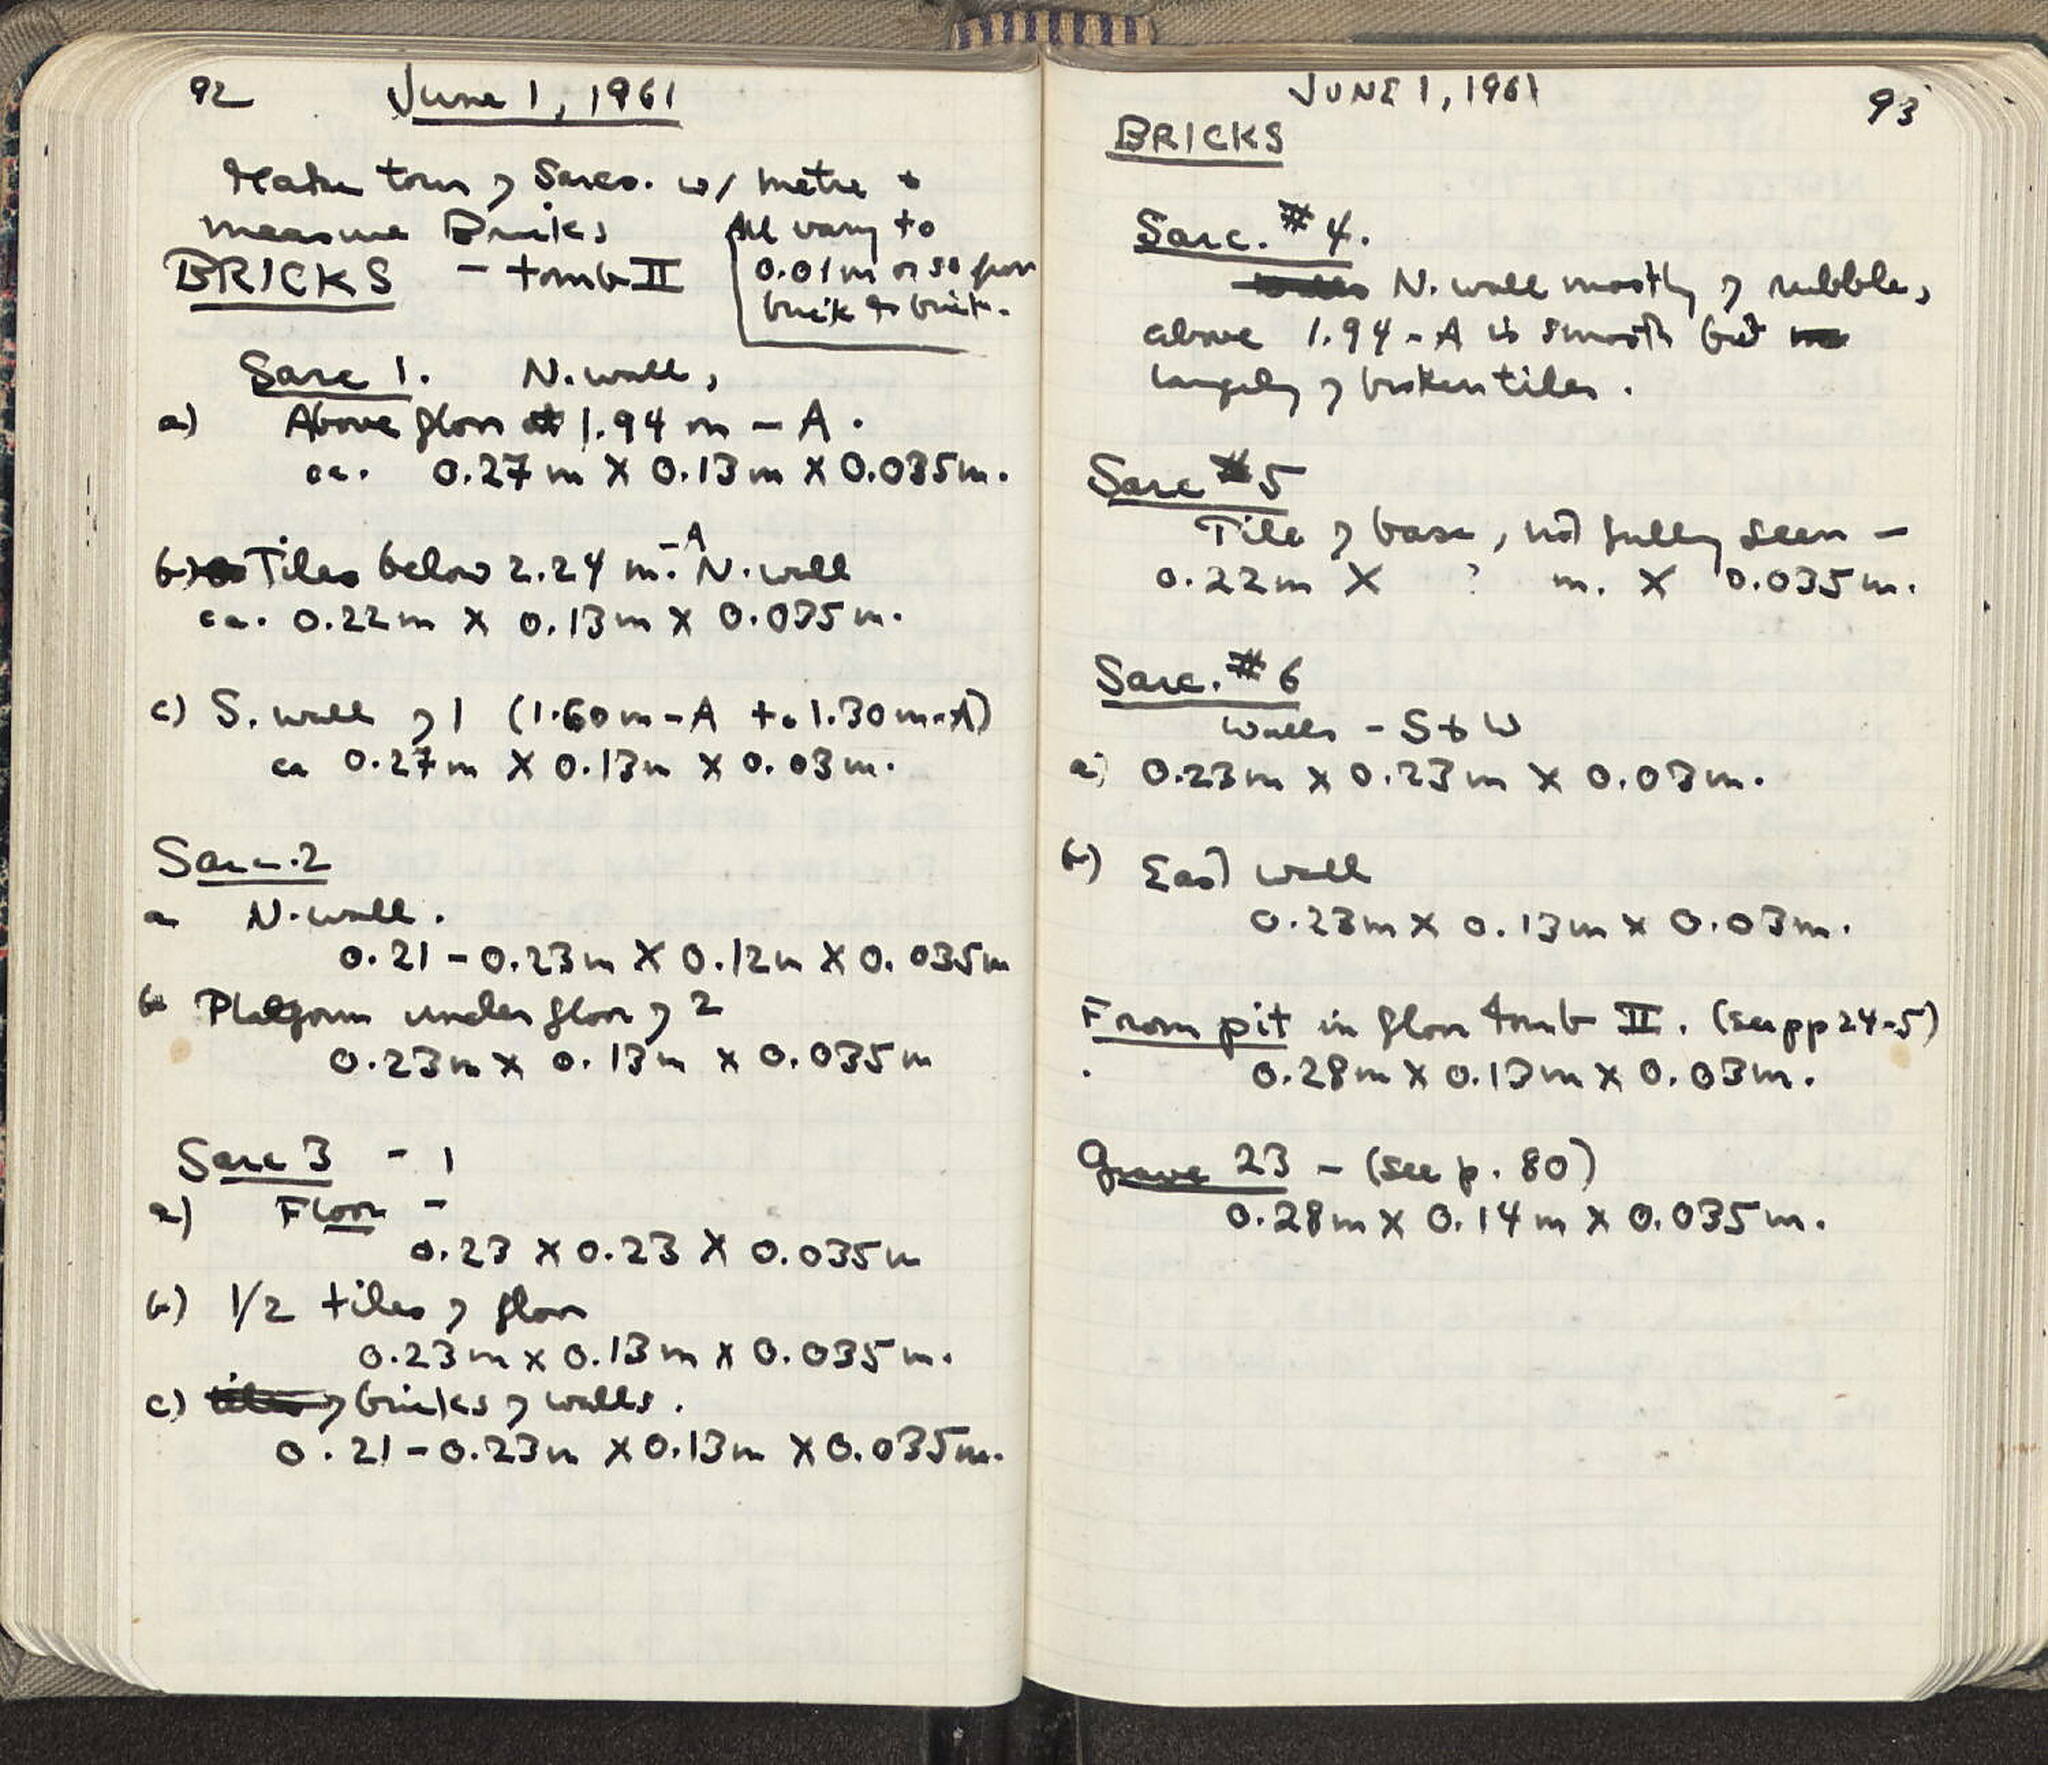 92 June 1, 1961
Make tour of Sarcs. w/ metre +
measure Bricks
BRICKS - tomb II
All vary to
0.01m or so from
brick to brick.
Sarc 1. N. wall,
a) Above floor at 1.94 m - A.
ca. 0.27 m X 0.13 m X 0.035 m.
b) Tiles below 2.24 m. - A N. wall
ca. 0.22 m X 0.13 m X 0.035 m.
c) S. wall of 1 (1.60 m - A to 1.30 m - A)
ca 0.27 m X 0.13 m X 0.03 m.
Sarc. 2
a N. wall.
0.21 - 0.23 m X 0.12 m X 0.035 m
b Platform under floor of 2
0.23 m x 0.13 m x 0.035 m
Sarc 3 - 1
a) Floor -
0.23 X 0.23 X 0.035 m
b) 1/2 tiles of floor
0.23 m x 0.13 m x 0.035 m.
c) tiles of bricks of walls.
0.21 - 0.23 m X 0.13 m X 0.035 m.
JUNE 1, 1961 93
BRICKS
Sarc. #4.
walls N. wall mostly of rubble,
above 1.94 - A is smooth but
largely of broken tiles.
Sarc #5
Tile of base, not fully seen -
0.22 m X ? m. X 0.035 m.
Sarc. #6
Walls - S + W
a) 0.23 m x 0.23 m X 0.03 m.
b) East wall
0.23 m X 0.13 m x 0.03 m.
From pit in floor tomb II. (see pp 24-5)
0.28 m X 0.13 m X 0.03 m.
Grave 23 - (see p. 80)
0.28 m X 0.14 m X 0.035 m.